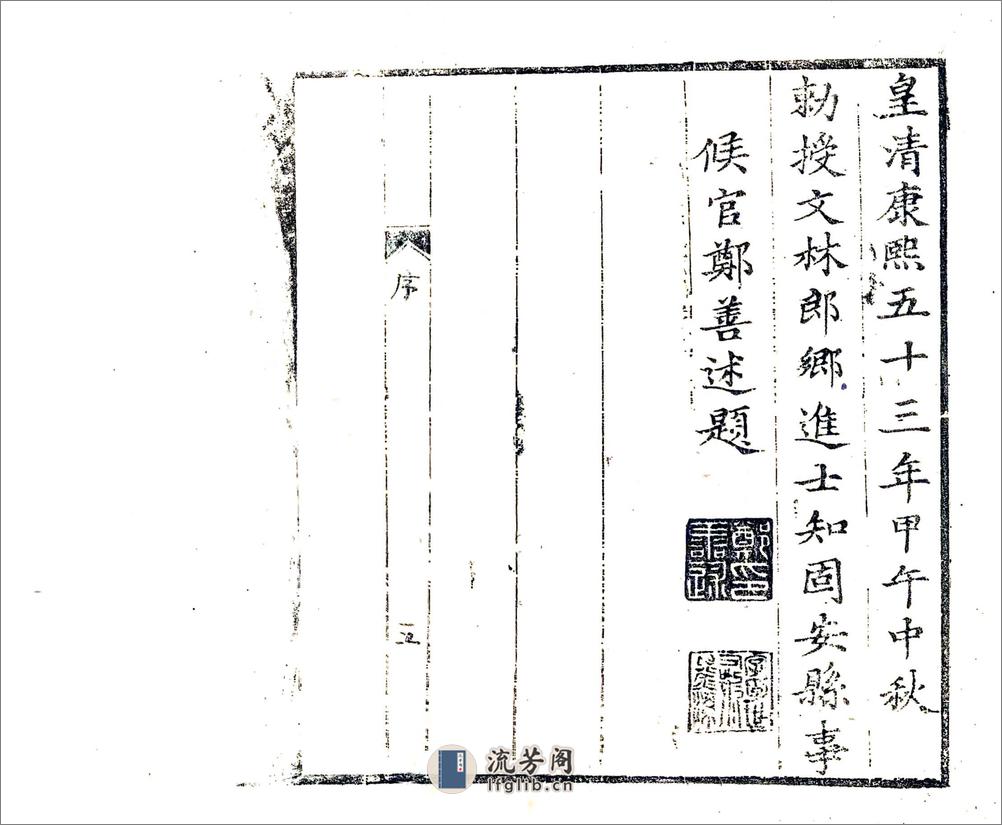 皇清康熙五十三年甲午中秋
勅授文林郎鄉進士知固安縣事
候官鄭善述題
序
五
流芳阁
lfglib.cn